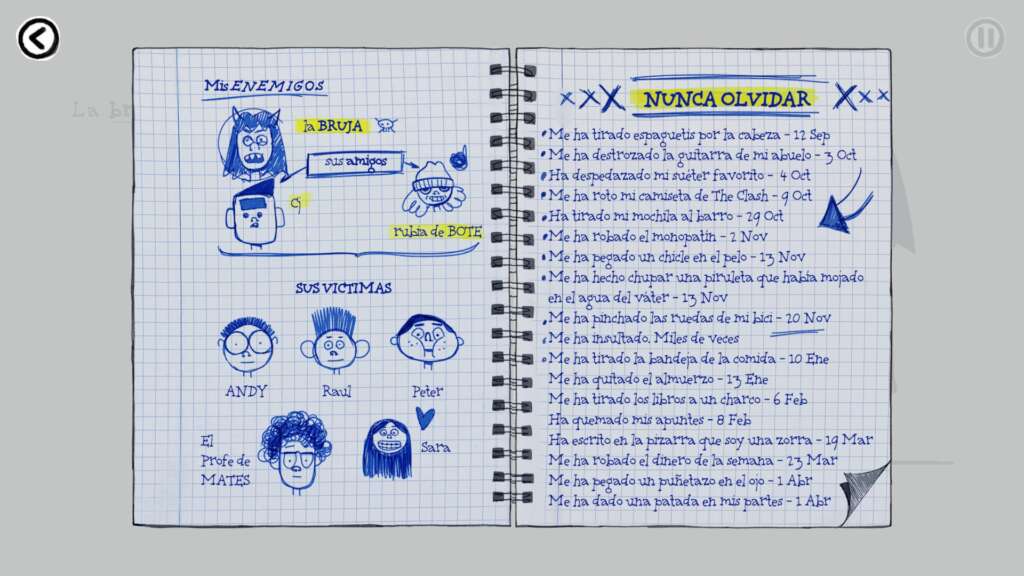 La br
Mis ENEMIGOS
la BRUJA
sus amigos
CJ
rubia de BOTE
SUS VICTIMAS
ANDY Raul Peter
El
Profe de
MATES
Sara
NUNCA OLVIDAR
Me ha tirado espaguetis por la cabeza - 12 Sep
Me ha destrozado la guitarra de mi abuelo - 3 Oct
Ha despedazado mi suéter favorito - 4 Oct
Me ha roto mi camiseta de The Clash - 9 Oct
Ha tirado mi mochila al barro - 29 Oct
Me ha robado el monopatín - 2 Nov
Me ha pegado un chicle en el pelo - 13 Nov
Me ha hecho chupar una piruleta que había mojado
en el agua del váter - 13 Nov
Me ha pinchado las ruedas de mi bici - 20 Nov
Me ha insultado. Miles de veces
Me ha tirado la bandeja de la comida - 10 Ene
Me ha quitado el almuerzo - 13 Ene
Me ha tirado los libros a un charco - 6 Feb
Ha quemado mis apuntes - 8 Feb
Ha escrito en la pizarra que soy una zorra - 19 Mar
Me ha robado el dinero de la semana - 23 Mar
Me ha pegado un puñetazo en el ojo - 1 Abr
Me ha dado una patada en mis partes - 1 Abr